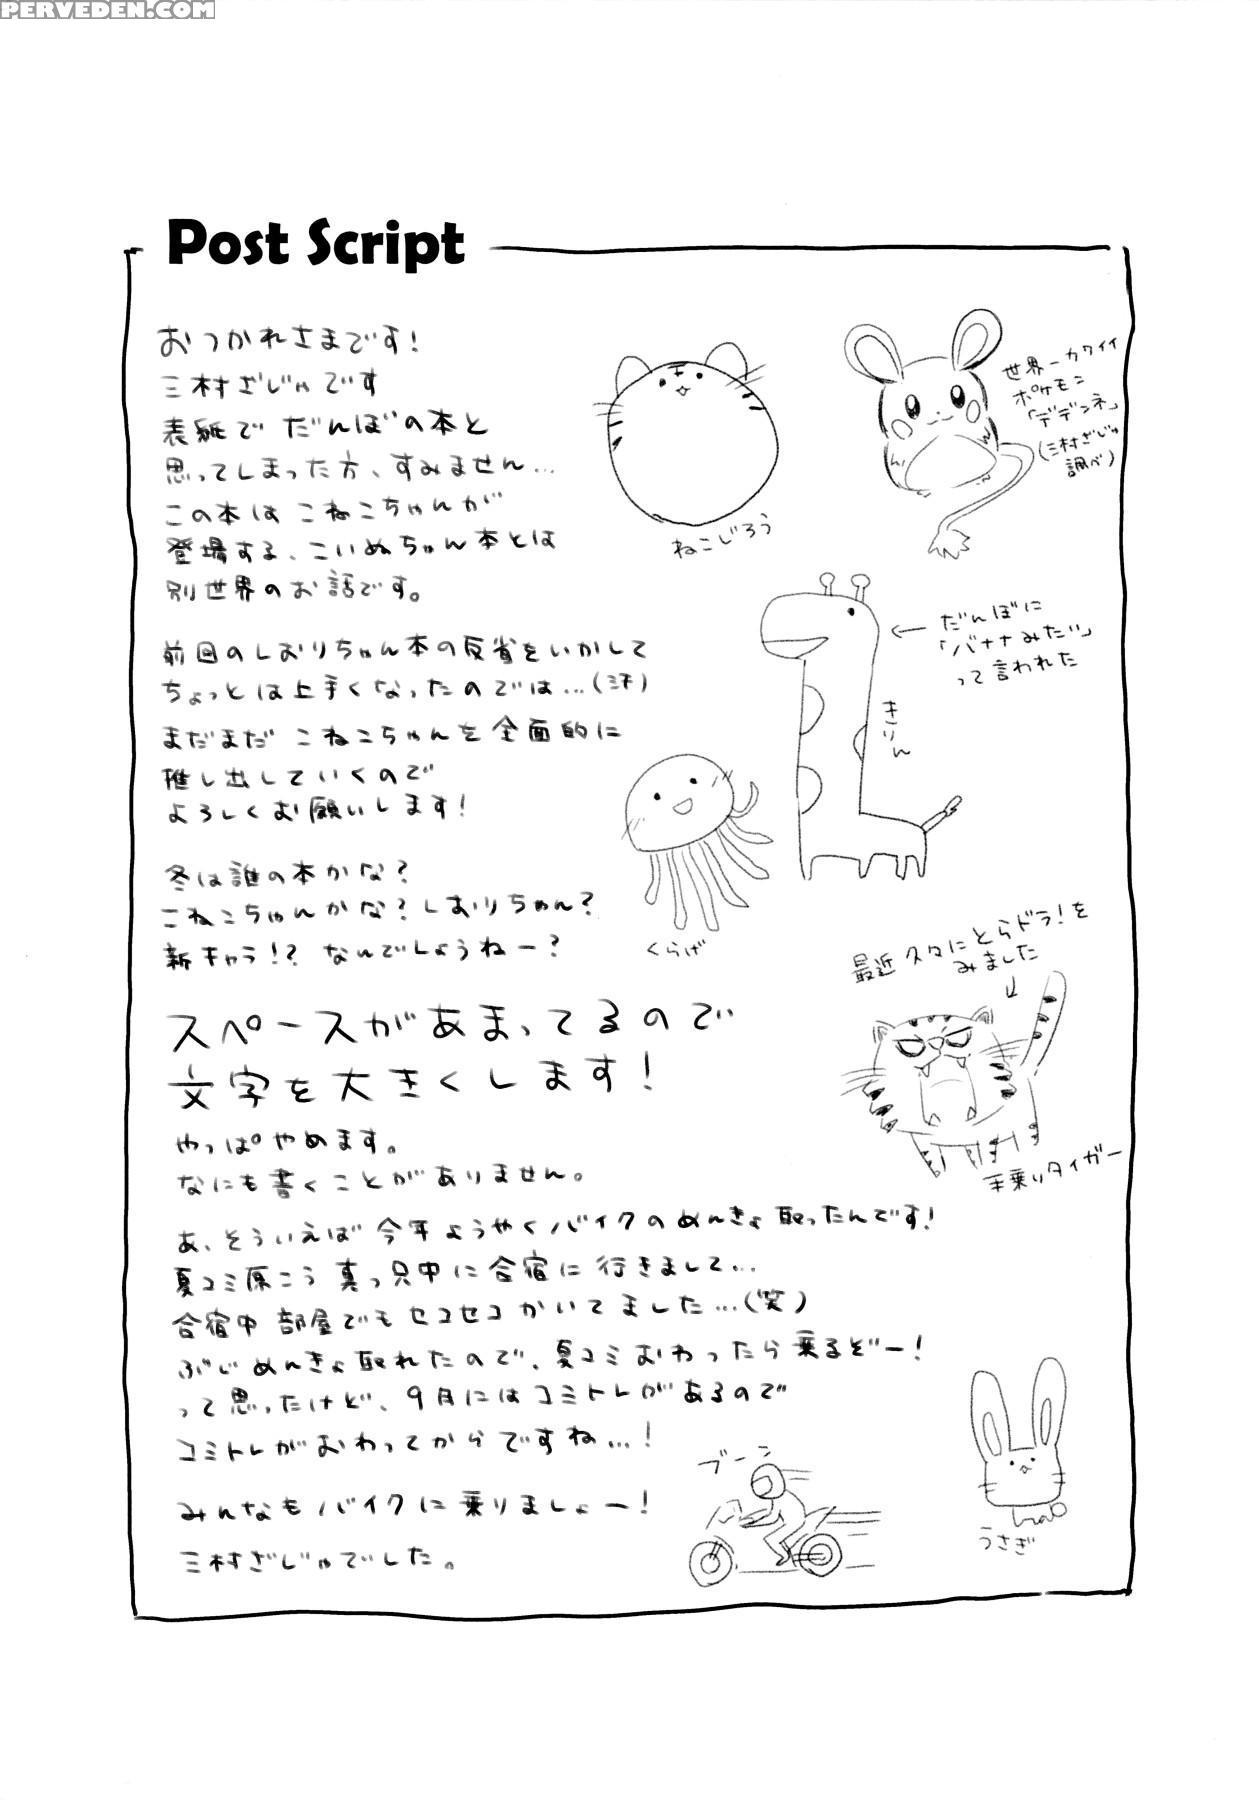 PERVEDEN.COM
Post Script
おつかれさまです!
三村ざじゃです
表紙で だんぼの本と
思ってしまった方、すみません…
この本は こねこちゃんが
登場する、こいぬちゃん本とは
別世界のお話です。
前回のしおりちゃん本の反省をいかして
ちょっとは上手くなったのでは…(汗)
まだまだ こねこちゃんを全面的に
推し出していくので
よろしくお願いします!
冬は誰の本かな?
こねこちゃんかな?しおりちゃん?
新キャラ!? なんでしょうねー?
スペースがあまってるので
文字を大きくします!
やっぱやめます。
なにも書くことがありません。
あ、そういえば 今年ようやくバイクのめんきょ取ったんです!
夏コミ原こう真っ只中に合宿に行きまして…
合宿中 部屋でもセコセコかいてました…(笑)
ぶじめんきょ取れたので、夏コミおわったら乗るぞー!
って思ったけど、9月にはコミトレがあるので
コミトレがおわってからですね…!
みんなもバイクに乗りましょー!
三村ざじゃでした。
ねこじろう
世界一カワイイ
ポケモン
「デデンネ」
(三村ざじゃ
調べ)
← だんぼに
「バナナみたい」
って言われた
きりん
くらげ
最近 久々にとらドラ!を
みました
手乗りタイガー
ブーン
うさぎ